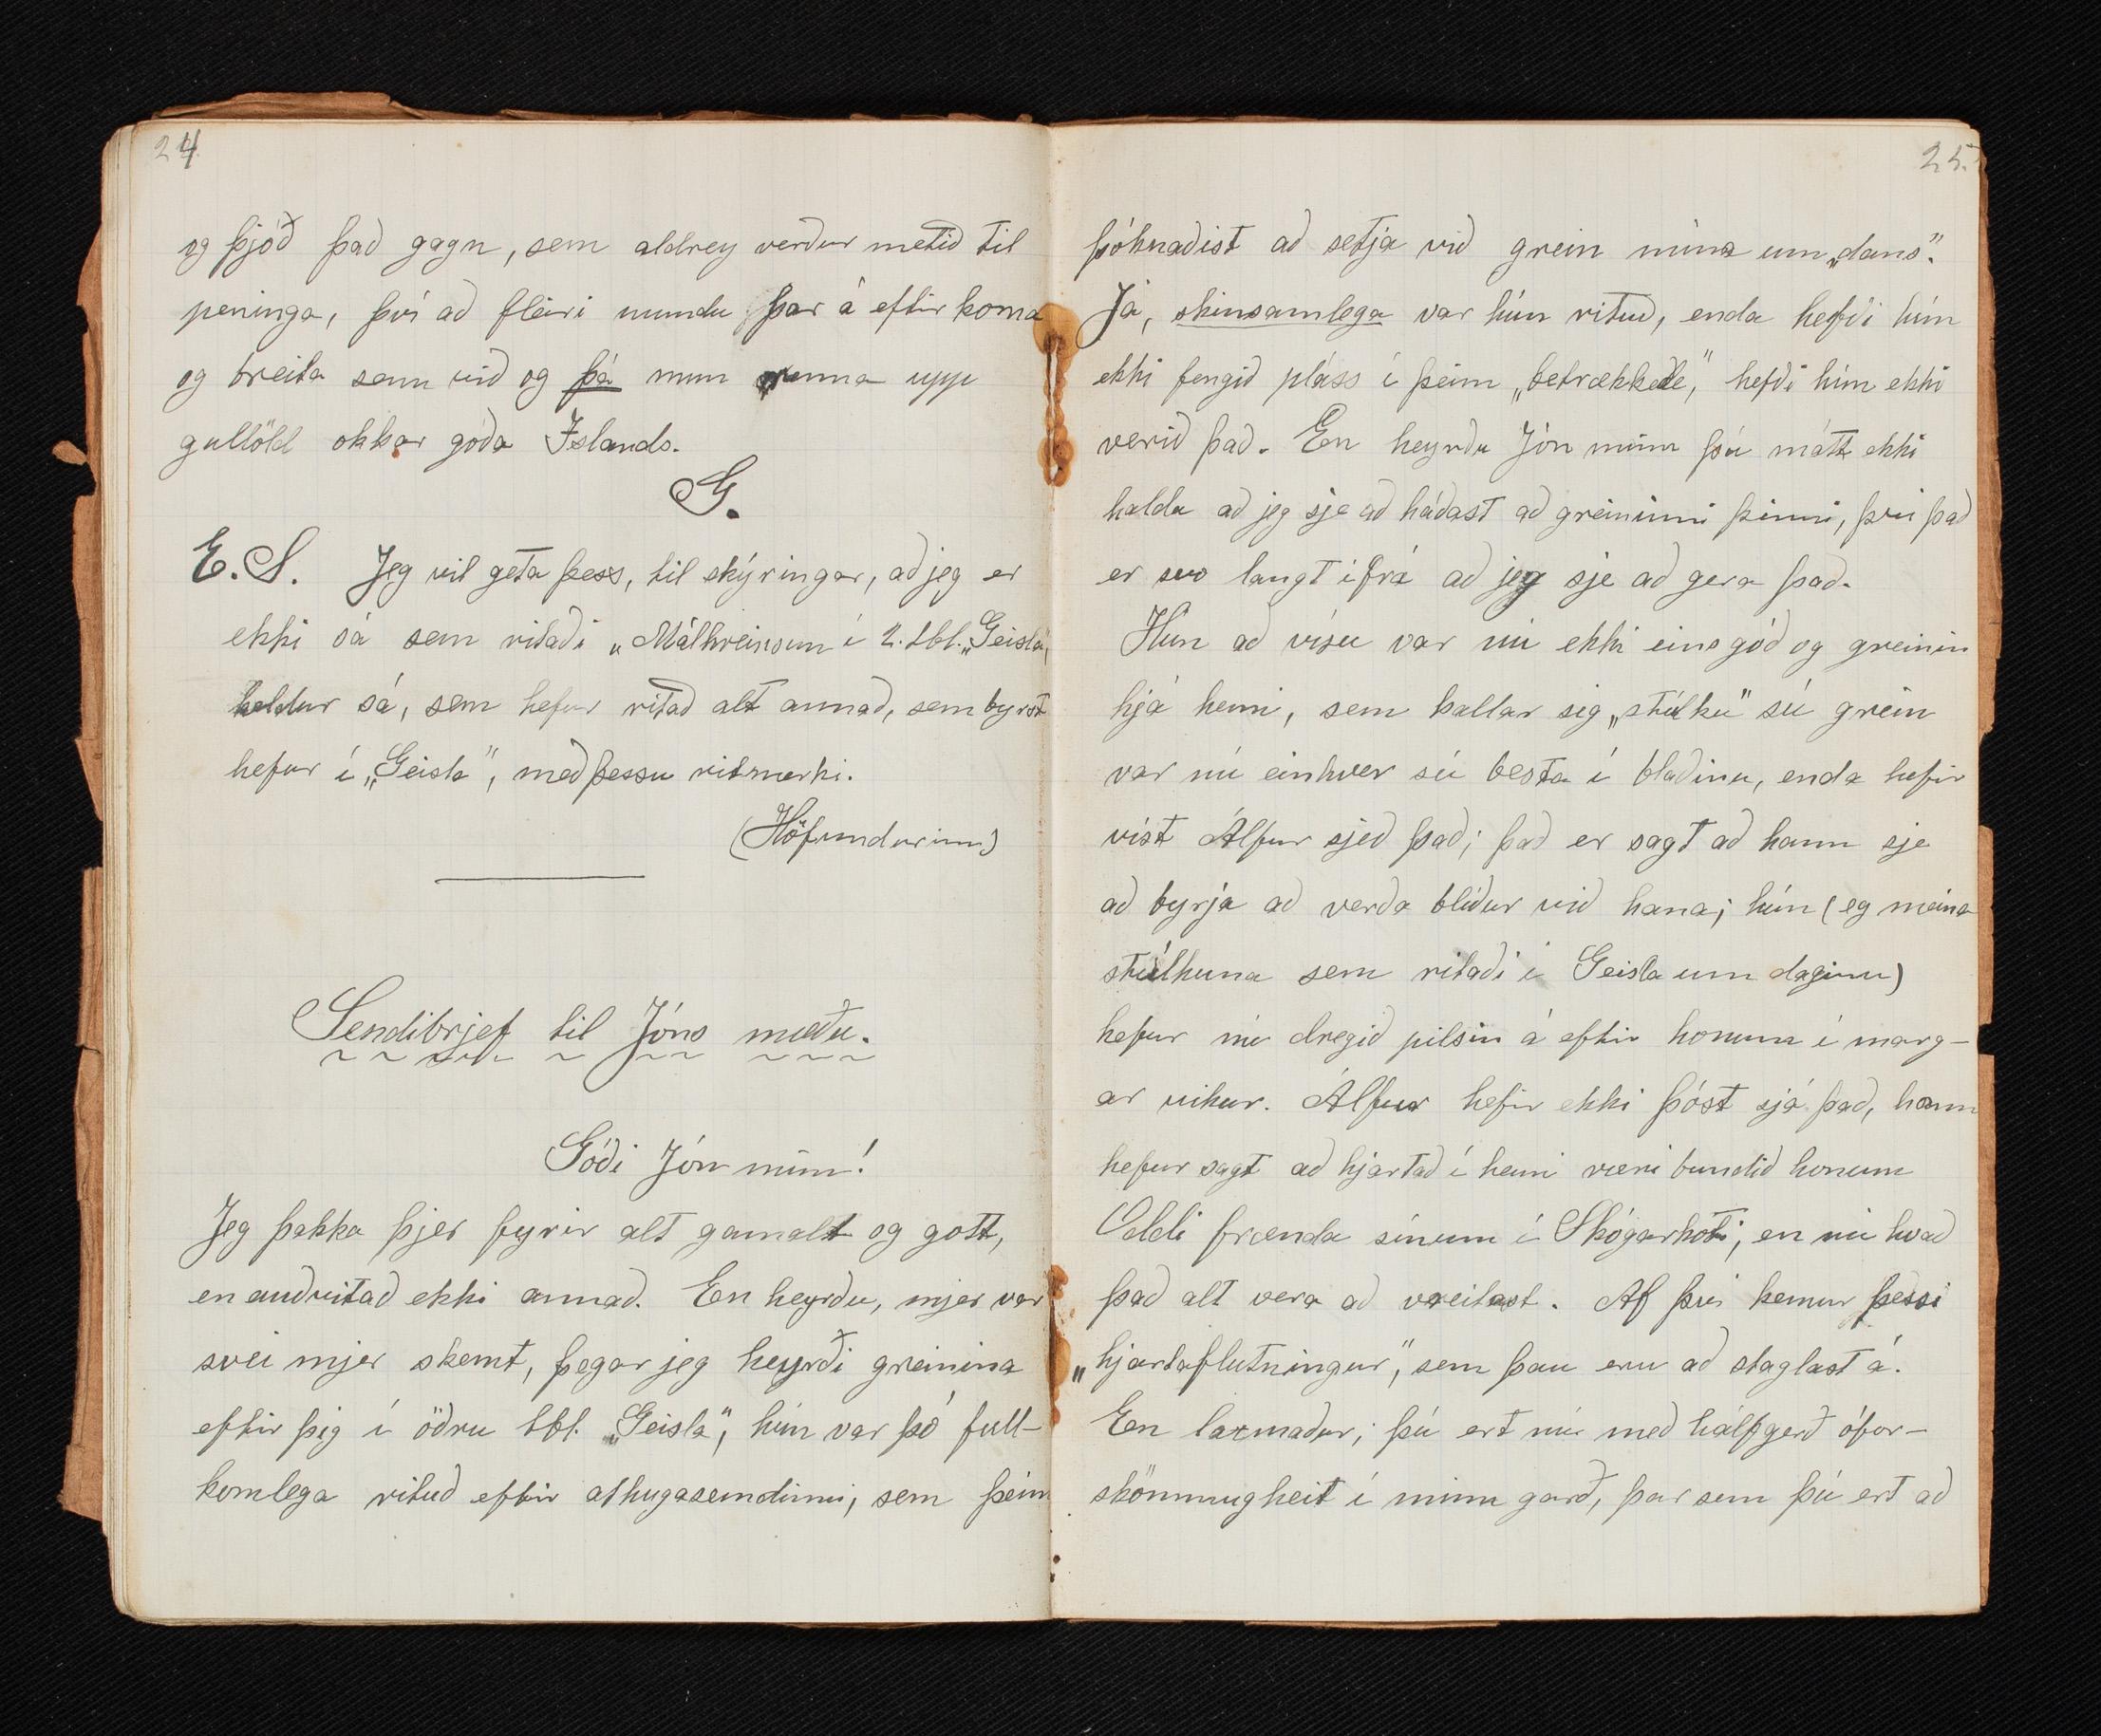 24.
og þjóð það gagn, sem aldrey verður metið til
peninga, því að fleiri mundu þar á eftir koma
og breita sem við og þá mun renna upp
gullöld okkar góða Íslands.
G.
E. S. Jeg vil geta þess, til skýringar, að jeg er
ekki sá sem ritaði „Málhreinsun í 2. tbl. „Geisla",
heldur sá, sem hefur ritað alt annað, sem byrst
hefur í „Geisla", með þessu ritmerki.
(Höfundurinn)
Sendibrjef til Jóns mæðu.
Góði Jón minn!
Jeg þakka þjer fyrir alt gamalt og gott,
en auðvitað ekki annað. En heyrðu, mjer var
svei mjer skemt, þegar jeg heyrði greinina
eftir þig í öðru tbl. „Geisla", hún var þó full-
komlega rituð eftir athugasemdinni, sem þeim
25.
þóknaðist að setja við grein mína um „dans".
Já, skinsamlega var hún rituð, enda hefði hún
ekki fengið pláss í þeim „betrekkede", hefði hún ekki
verið það. En heyrðu Jón minn þú mátt ekki
halda að jeg sje að háðast að greininni þinni, því það
er svo langt ífrá að jeg sje að gera það.
Hún að vísu var nú ekki eins góð og greinin
hjá henni, sem kallar sig „stúlku" sú grein
var nú einhver sú besta í blaðinu, enda hefir
víst Álfur sjeð það; það er sagt að hann sje
að byrja að verða blíður við hana; hún (eg meina
stúlkuna sem ritaði í Geisla um daginn)
hefur nú dregið pilsin á eftir honum í marg-
ar vikur. Álfur hefir ekki þóst sjá það, hann
hefur sagt að hjartað í henni væri bundið honum
Oddi frænda sínum í Skógarkoti, en nú hvað
það alt vera að vreitast. Af því kemur þessi
„hjartaflutningur", sem þau eru að staglast á.
En laxmaður; þú ert nú með hálfgerð ófor-
skömmugheit í minn garð, þar sem þú ert að